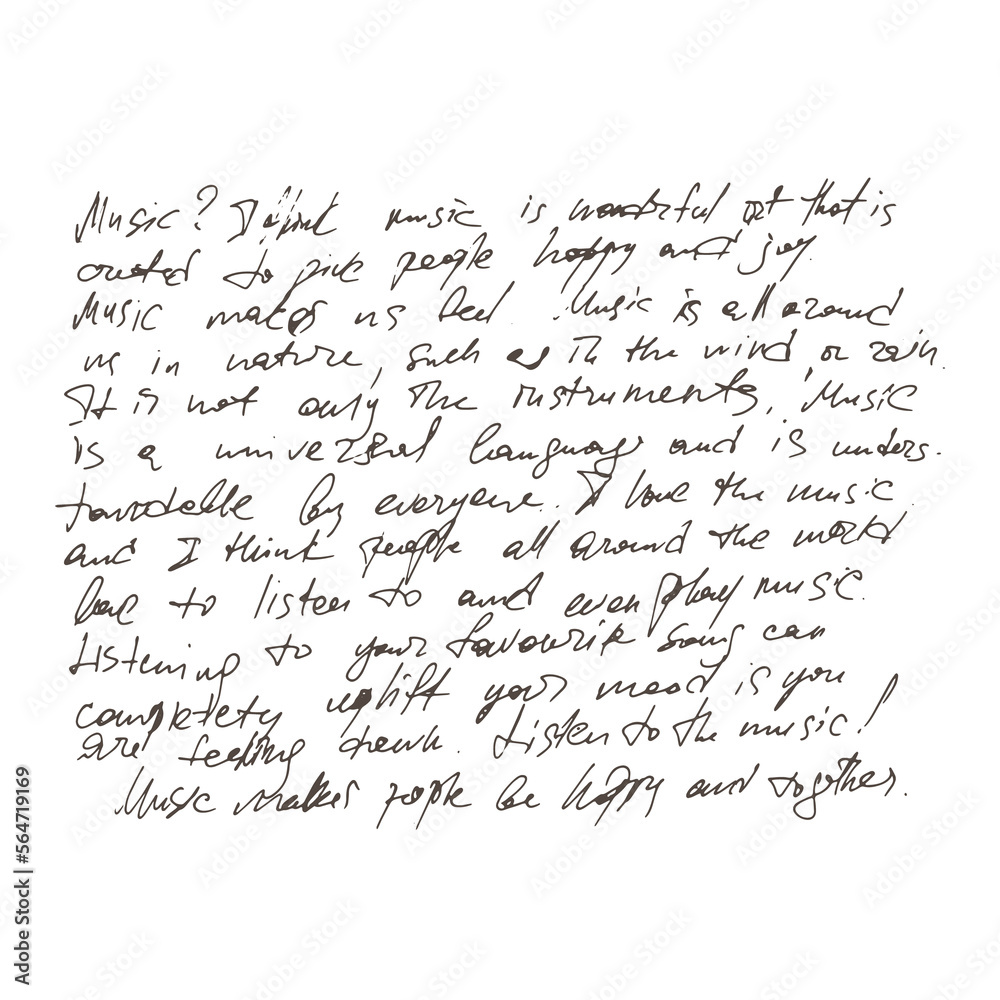 Music? I think music is wonderful art that is
created to give people happy and joy.
Music makes us feel. Music is all around
us in nature, such as in the wind or rain.
It is not only the instruments, Music
is a universal language and is unders-
tandable by everyone. I love the music
and I think people all around the world
love to listen to and even play music.
Listening to your favourite song can
completely uplift your mood is you
are feeling down. Listen to the music!
Music makes people be happy and together.
Adobe Stock | #564719169
Adobe Stock